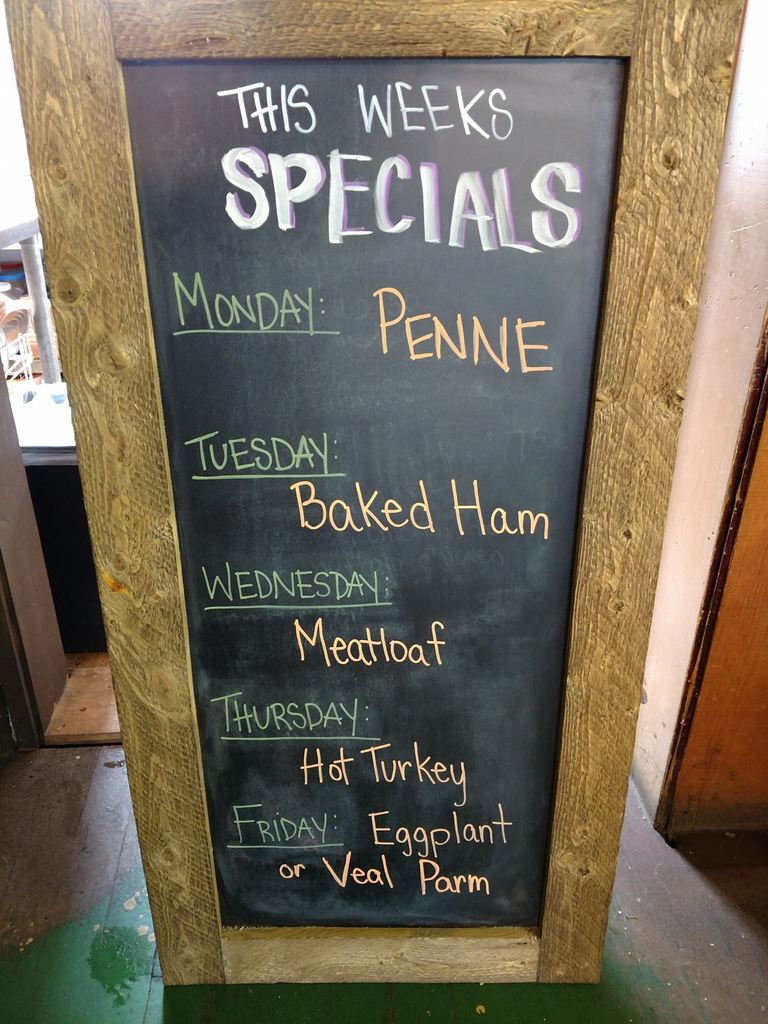 THIS WEEKS
SPECIALS
MONDAY: PENNE
TUESDAY:
Baked Ham
WEDNESDAY:
Meatloaf
THURSDAY:
Hot Turkey
FRIDAY: Eggplant
or Veal Parm